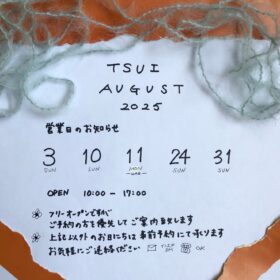 TSUI
AUGUST
2025
営業日のお知らせ
3 10 11 24 31
SUN SUN MON SUN SUN
OPEN 10:00 - 17:00
※ フリーオープンですが
ご予約の方を優先してご案内致します
※ 上記以外のお日にちは事前予約にて承ります
お気軽にご連絡ください OK